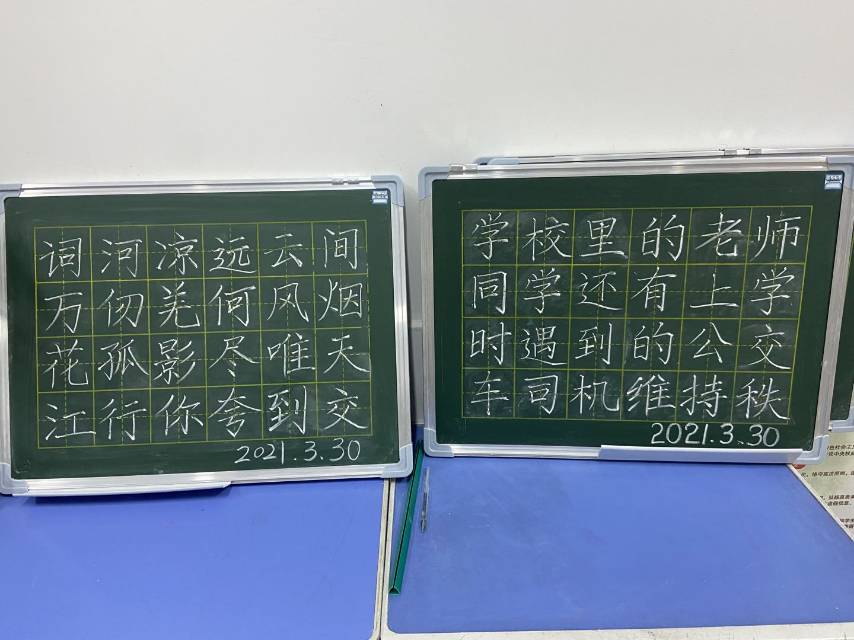 词河凉远云间
万仞羌何风烟
花孤影尽唯天
江行你夸到交
2021.3.30
学校里的老师
同学还有上学
时遇到的公交
车司机维持秩
2021.3.30